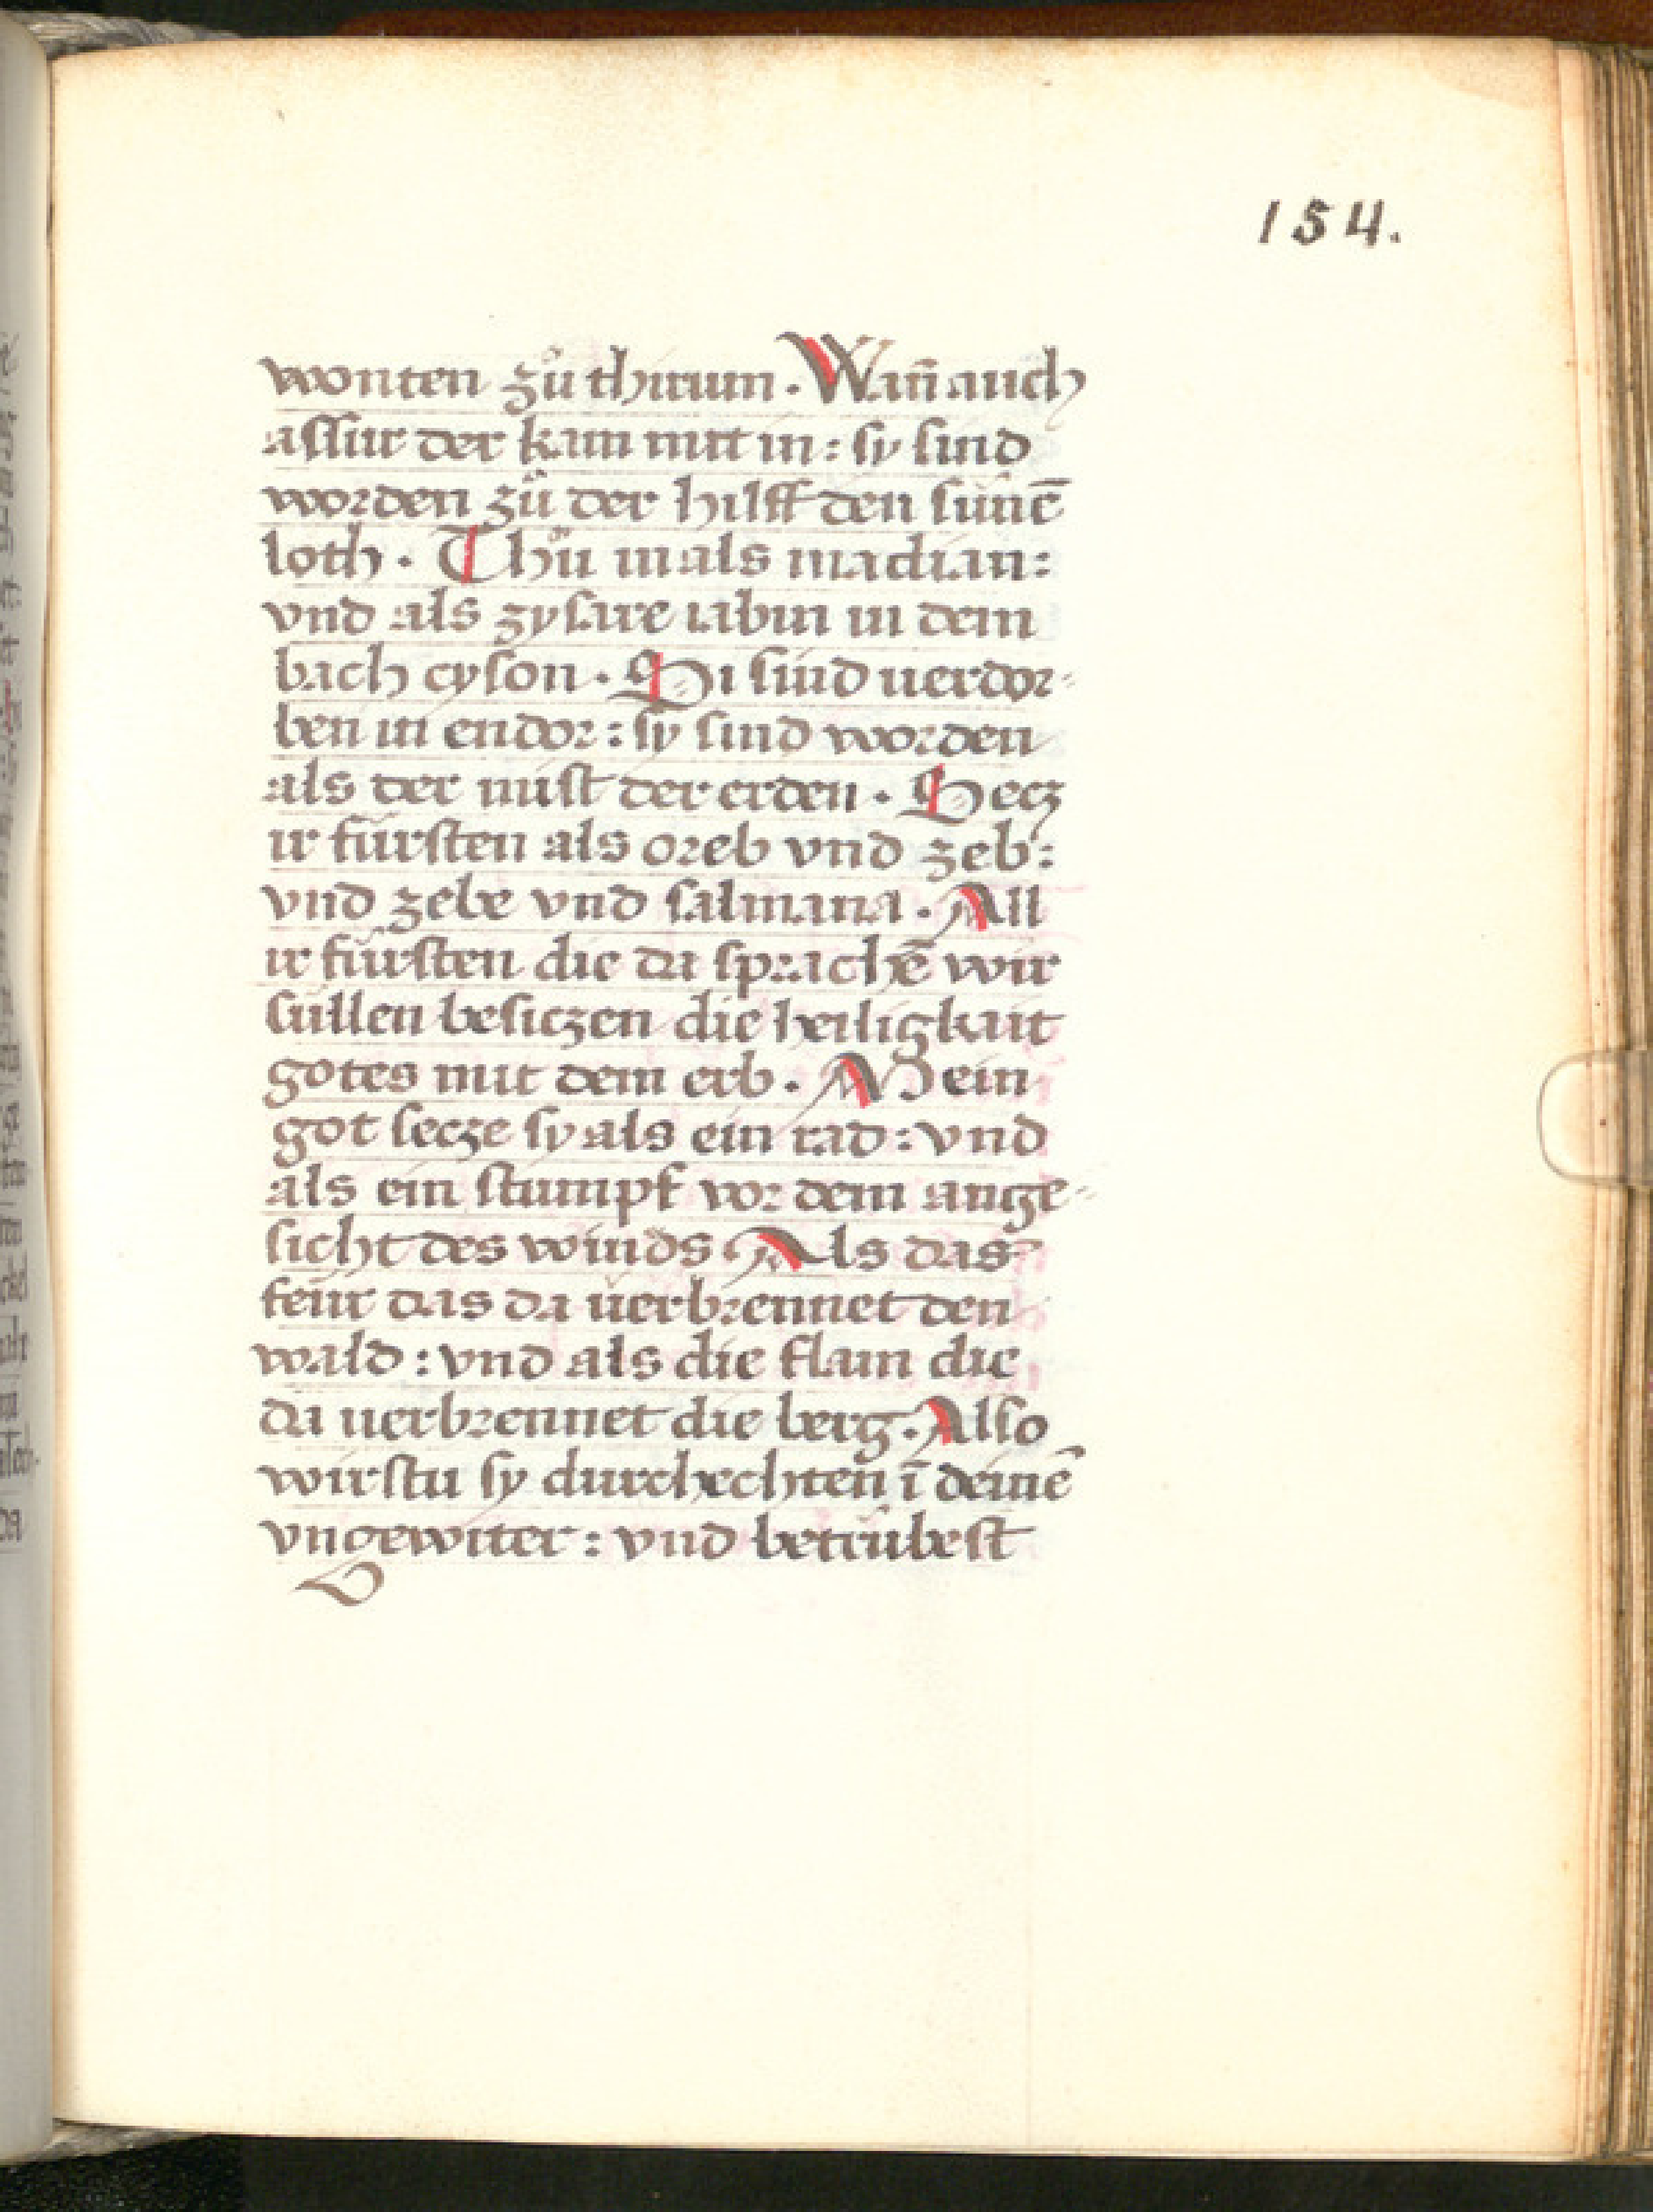 154.
wonten zů thirum. Wan̄ auch
assur der kam mit in: sy sind
worden zů der hilff den sünē
loth. Thů in als madian:
vnd als zysare iabin in dem
bach cyson. Si sind uerdor-
ben in endor: sy sind worden
als der mist der erden. Secz
ir fürsten als oreb vnd zeb:
vnd zebe vnd salmana. All
ir fürsten die da sprachē wir
süllen besiczen die heiligkait
gotes mit dem erb. Mein
got secze sy als ein rad: vnd
als ein stumpf vor dem ange-
sicht des winds Als das
feür das da uerbrennet den
wald: vnd als die flam die
da uerbrennet die berg. Also
wirstu sy durchechten ī deinē
vngewiter: vnd betrůbest